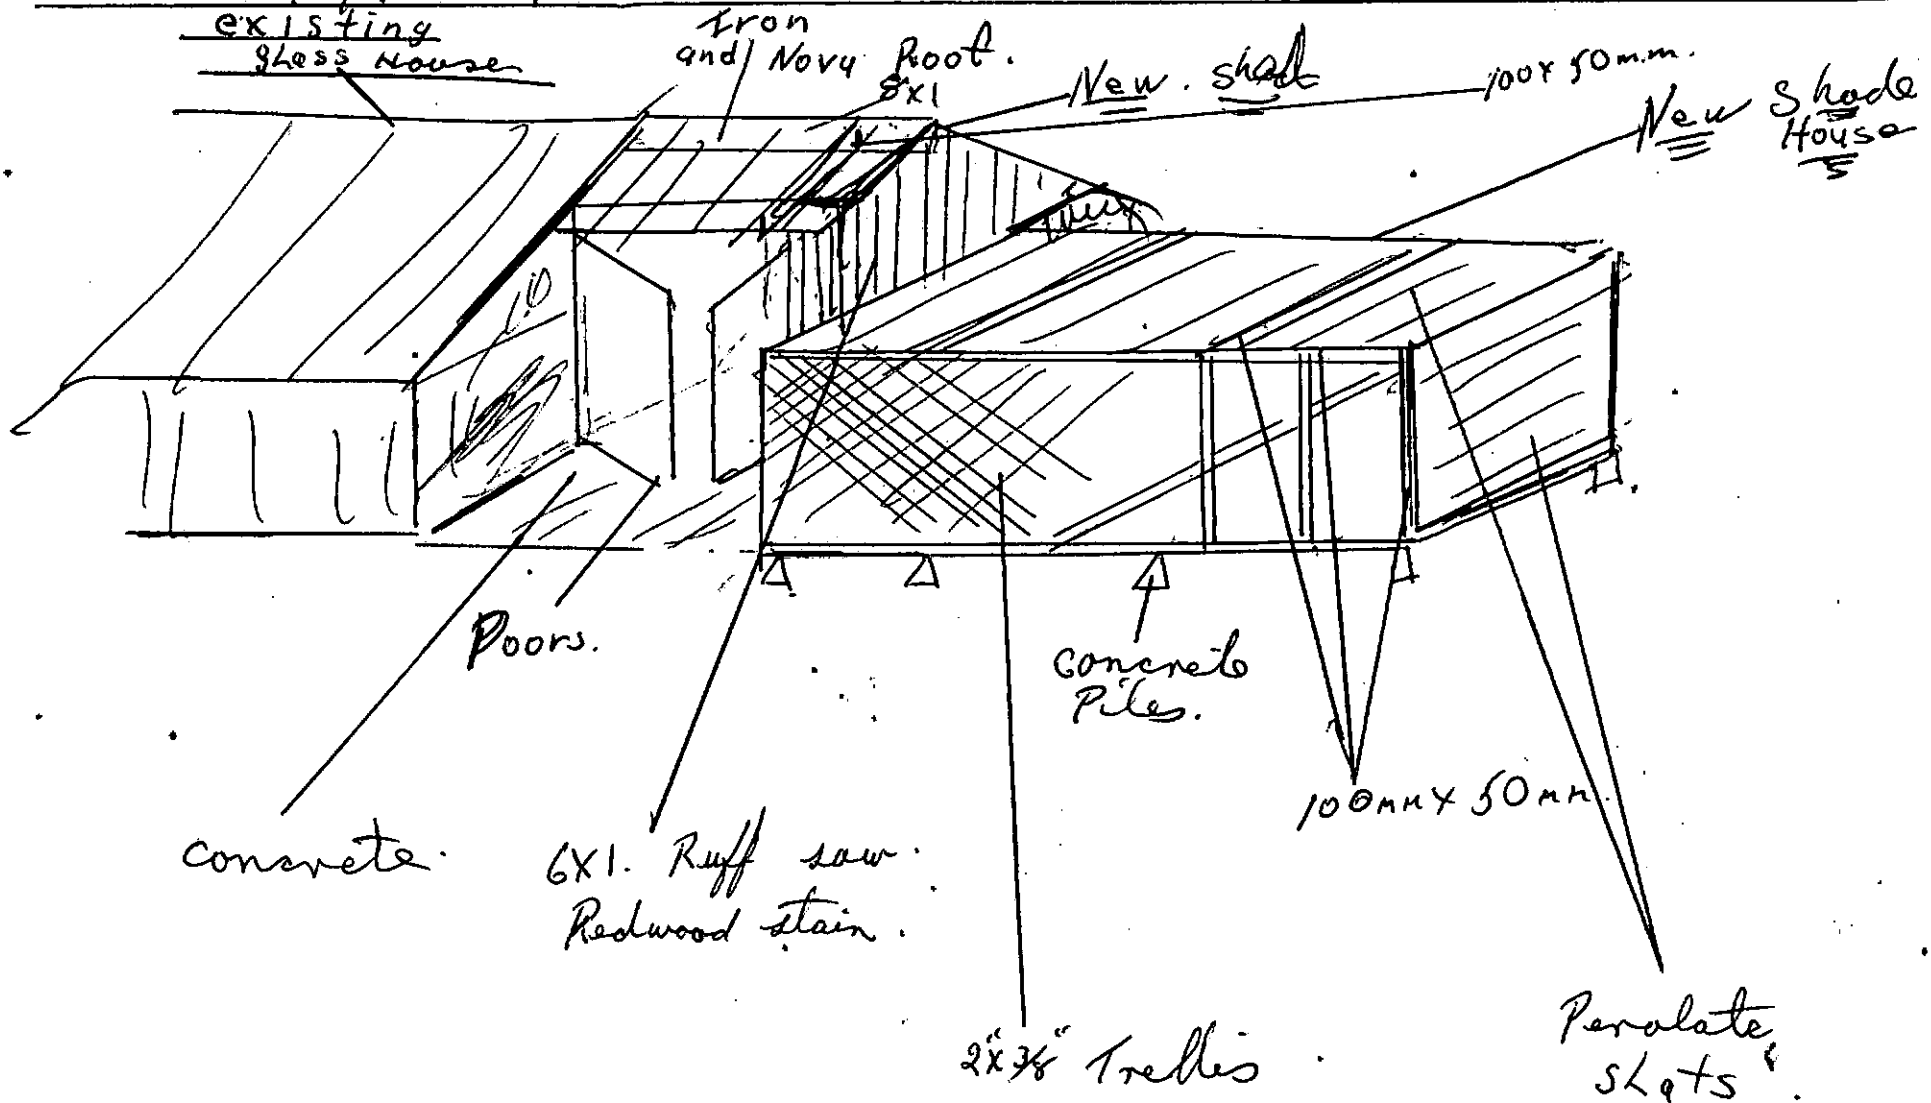 existing
glass House
Iron
and Nova Roof.
8x1
New. shed
100x50m.m.
New Shade
House
Doors.
concrete
Piles.
100mmx50mm.
concrete.
6x1. Ruff saw.
Redwood stain.
2"x3/8" Trellis
slats